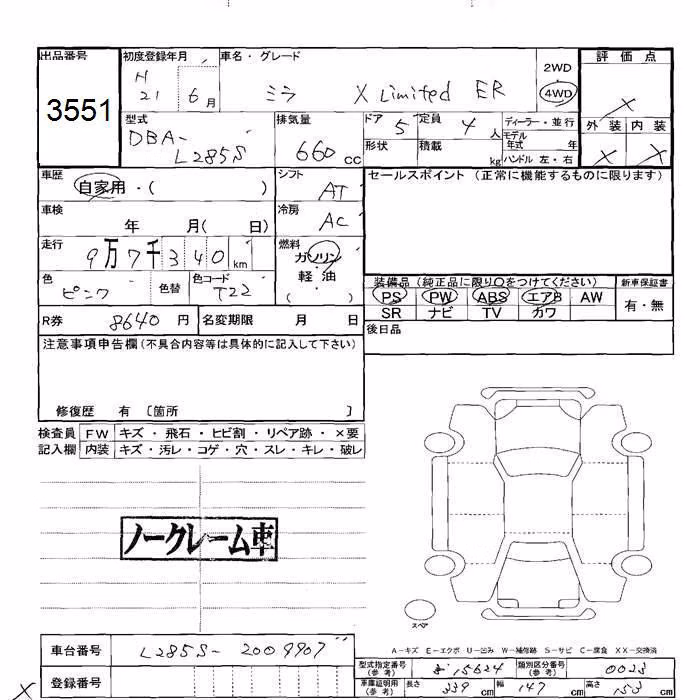 出品番号 初度登録年月 車名・グレード 評価点
3551 H 21 6月 ミラ X Limited ER 2WD 4WD X
型式 排気量 ドア 定員 ディーラー・並行 外装 内装
DBA-L285S 660cc 5 4人 モデル年式 年 X X
形状 積載 kg ハンドル 左・右
車歴 自家用・( ) シフト AT セールスポイント (正常に機能するものに限ります)
車検 年 月( 日) 冷房 AC
走行 9万7千340km 燃料 ガソリン・軽油 ( )
色 ピンク 色替 色コード T22
装備品 (純正品に限り○をつけてください) 新車保証書
PS PW ABS エアB AW 有・無
SR ナビ TV カワ
R券 8640円 名変期限 月 日 後日品
注意事項申告欄(不具合内容等は具体的に記入して下さい)
修復歴 有 〔箇所 〕
検査員 FW キズ・飛石・ヒビ割・リペア跡・×要
記入欄 内装 キズ・汚レ・コゲ・穴・スレ・キレ・破レ
ノークレーム車
スペア
A-キズ E-エクボ U-凹み W-補修跡 S-サビ C-腐食 XX-交換済
車台番号 L285S-2009907
登録番号
型式指定番号(参考) 15624 類別区分番号(参考) 0023
車庫証明用(参考) 長さ 339cm 幅 147cm 高さ 153cm
X